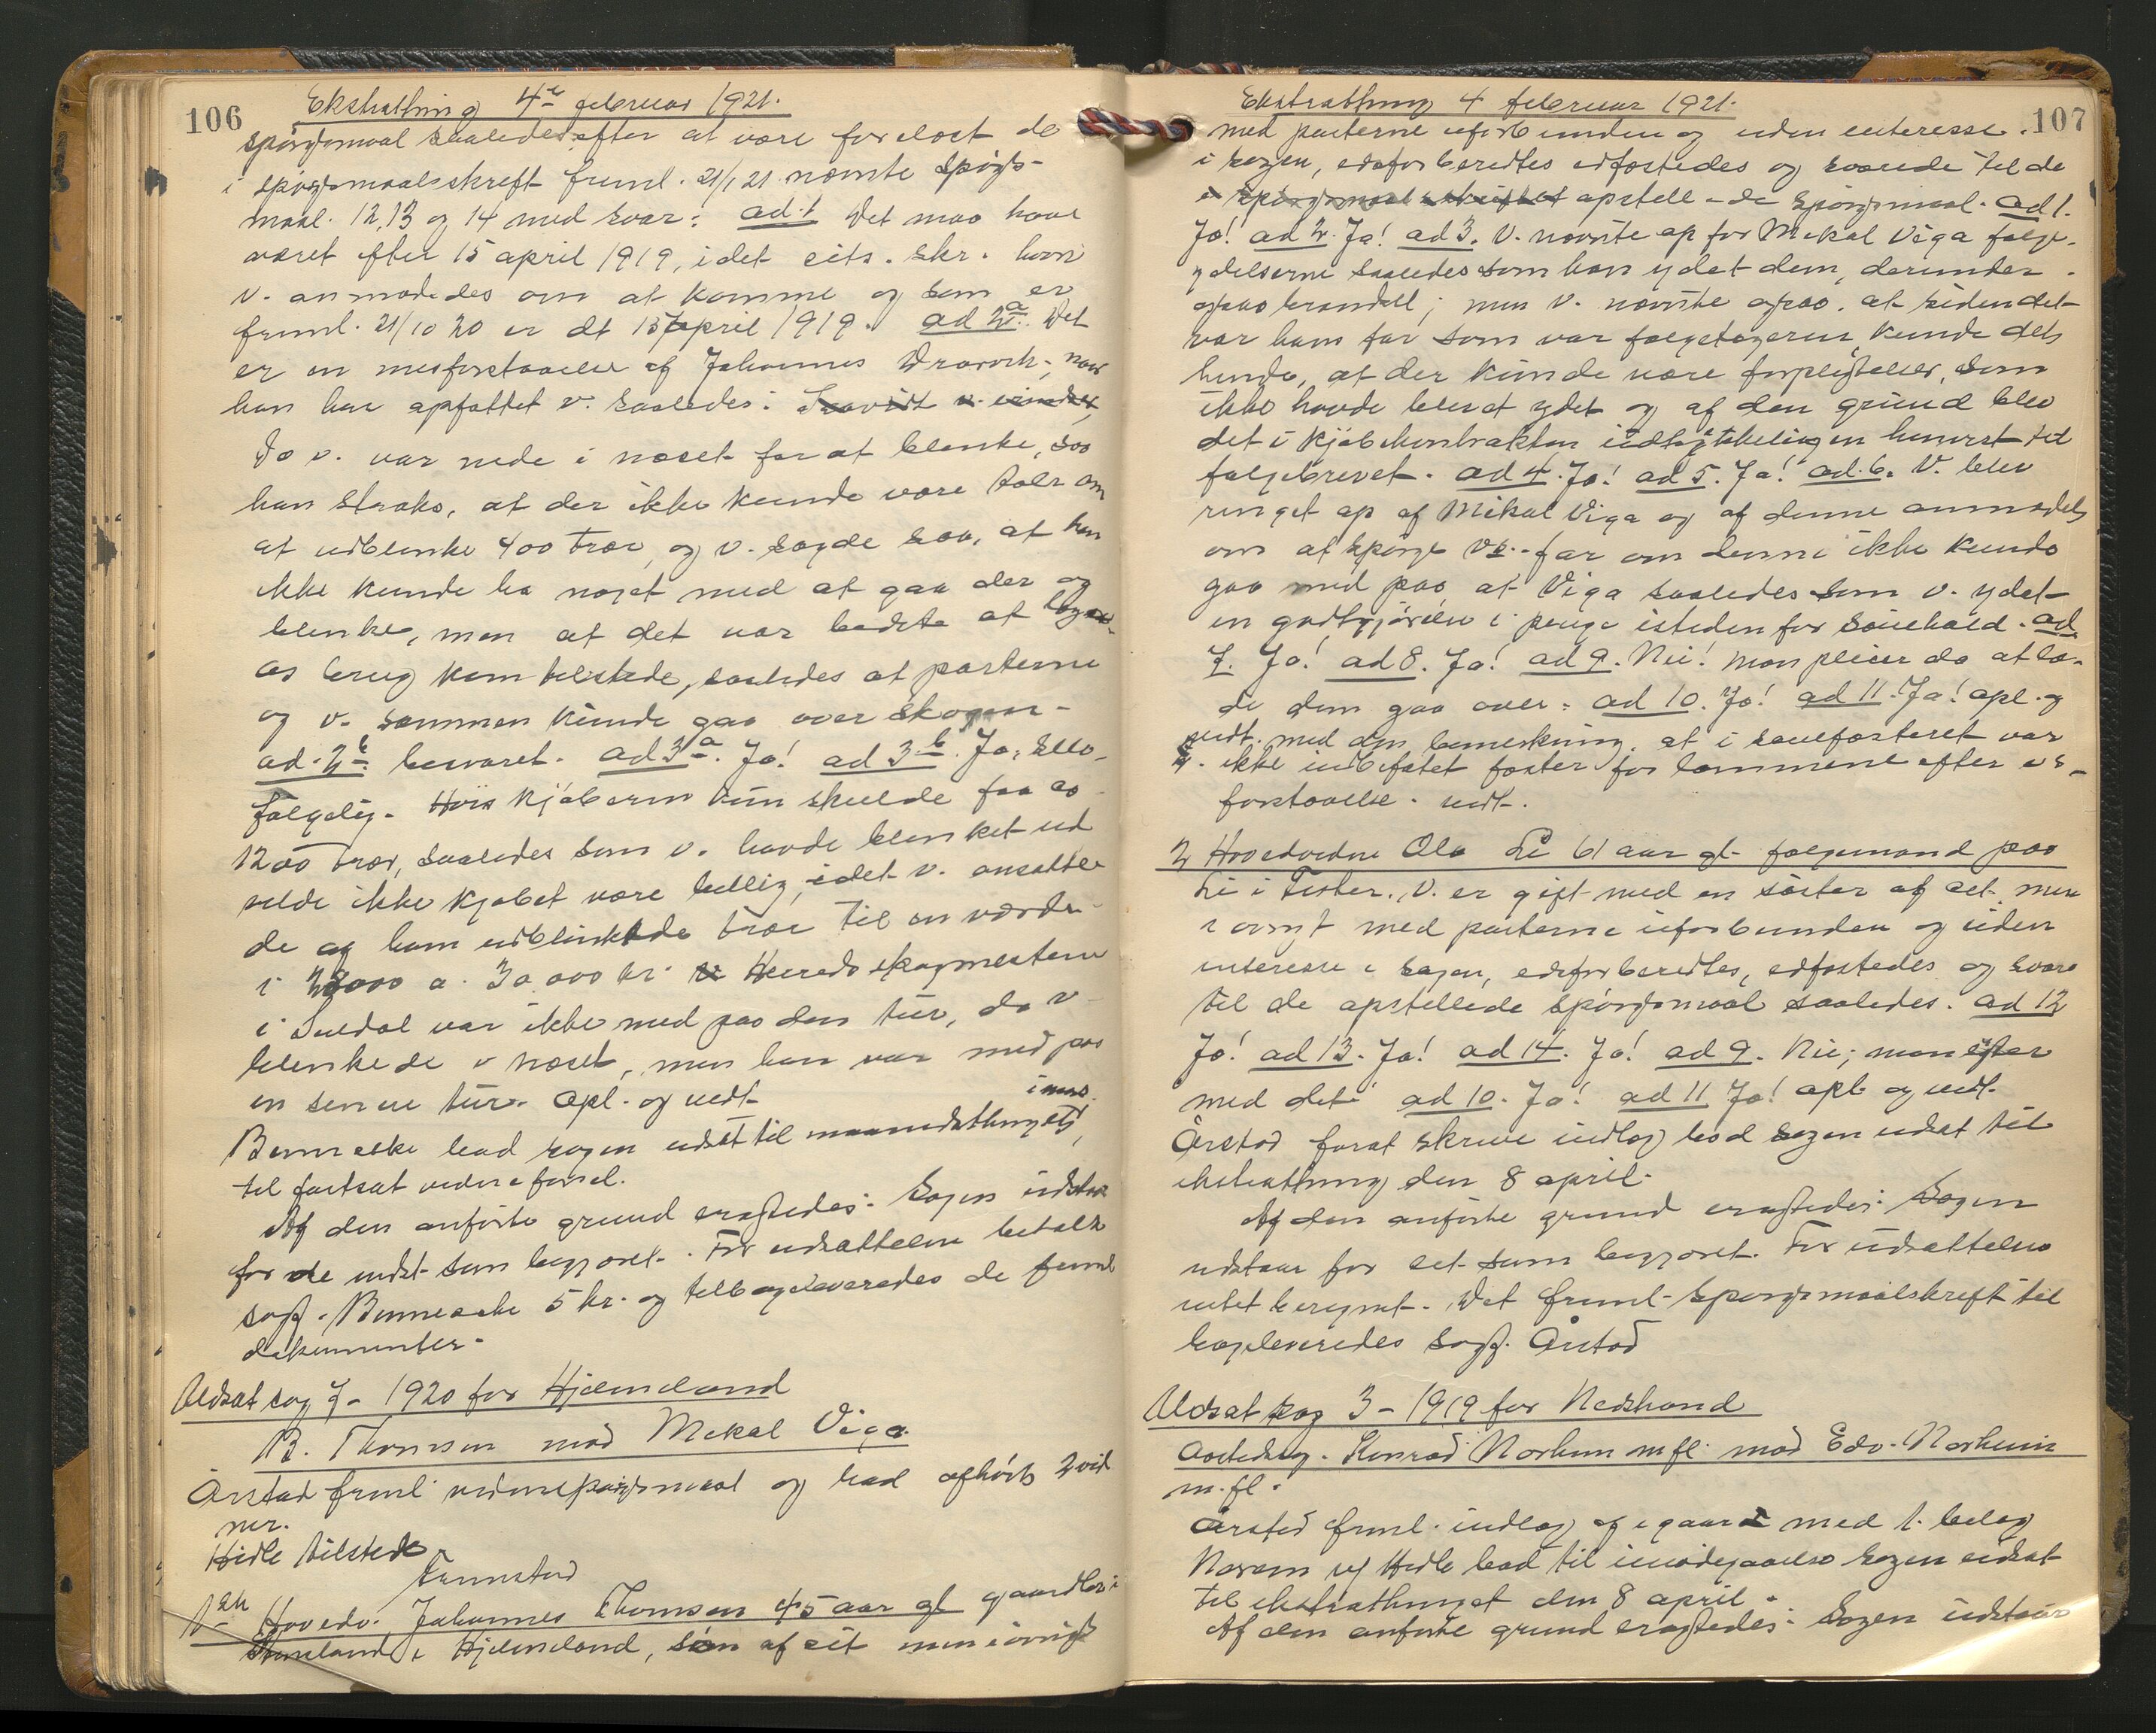 106
Ekstrathing 4de februar 1921.
spörgsmaal saaledes efter at være forelæst de
i spörgsmaalsskrift freml. 21/1 21 nævnte spörgs-
maal 12, 13 og 14 med svar: ad 1 Det maa have
været efter 15 april 1919, idet cits. skr. hvori
v. anmodedes om at komme og som er
freml. 21/10 20 er dt 15 april 1919. ad 2a. Det
er en misforstaaelse af Johannes naar
han har opfattet v. saaledes:
Da v. var nede i næset for at blinke, saa
han straks, at der ikke kunde være tale om
at udblinke 400 trær, og v. sagde saa, at han
ikke kunde ha noget med at gaa der og
blinke, men at det var bedste at
kom tilstede, saaledes at parterne
og v. sammen kunde gaa over skogen.
ad 2b. besvaret. ad 3a. Ja! ad 3b. Ja, selv-
fölgelig. Hvis kjöberen kun skulde faa
1200 trær, saaledes som v. havde blinket ud
vilde ikke kjöbet være billig, idet v. ansatte
de af ham udblinkede trær til en værdi
i 28000 a 30,000 kr. Herredsskogmesteren
i Suldal var ikke med paa den tur, da v.
blinkede i næset, men han var med paa
en senere tur. Opl. og vedt.
Bennesche bad sagen udsat til maanedsthinget i mars
til fortsat videre foreel.
Af den anförte grund eragtedes: Sagen udstaar
for de vidst som begjæret. For udsættelsen betalte
sagf. Bennesche 5 kr. og tilbageleveredes de freml
dokumenter.
Udsat sag 7 - 1920 for Hjelmeland
B. Thomsen mod Mikal Viga
Årstad freml. vidnespörgsmaal og bad afhört 2 vid
ner.
Hidle tilstede.
Tunstad
1ste Hovedv. Johannes Thomsen 45 aar gl gaardbr i
i Hjelmeland, sön af cit men iövrigt
107
Ekstrathing 4 februar 1921.
med parterne uforbunden og uden interesse
i sagen, edsforberedtes edfæstedes og svarede til de
i spörgsmaalsskriftet opstillede spörgsmaal. ad 1.
Ja! ad 2. Ja! ad 3. V. nævnte op for Mikal Viga folge-
ydelserne saaledes som han ydet dem, derunder
ogsaa brændsel; men v. nævnte ogsaa, at siden det
var hans far som var folgetageren, kunde det
hende, at der kunde være forpligtelser, som
ikke havde blevet ydet og af den grund blev
det i kjöbekontrakten henvist til
folgebrevet. ad 4. Ja! ad 5. Ja! ad 6. V. blev
ringet op af Mikal Viga og af denne anmodet
om at spörge vs. far om denne ikke kunde
gaa med paa at Viga saaledes som v. ydet
en godtgjörelse i penge istedenfor sauehold. ad
7. Ja! ad 8. Ja! ad 9. Nei! man pleier da at la-
de dem gaa over. ad 10. Ja! ad 11. Ja! opl. og
vedt. med den bemerkning, at i sauefosteret var
ikke indbefatet foster for lammene efter vs.
forstaaelse. vedt.
2 Hovedvidne Ola Li 61 aar gl folgemand paa
Li i Fister. V. er gift med en söster af cit. men
iövrigt med parterne uforbunden og uden
interesse i sagen, edsforberedtes, edfæstedes og svare
til de opstillede spörgsmaal saaledes. ad 12
Ja! ad 13. Ja! ad 14. Ja! ad 9. Nei; man
med det. ad 10. Ja! ad 11 Ja! opl. og vedt.
Årstad forat skrive indlæg bad sagen udsat til
ekstrathing den 8 april.
Af den anförte grund eragtedes: Sagen
udstaar for cit som begjæret. For udsættelsen
intet beregnet. Det freml. spörgsmaalskrift til
bageleveredes sagf. Årstad
Udsat sag 3 - 1919 for Nedstrand
Aastedsag. Konrad Norheim mfl. mod Edv. Norheim
m.fl.
Årstad freml. indlæg af igaar med 1. belæg
v/ Hidle bad til imödegaaelse sagen udsat
til ekstrathinget den 8 april.
Af den anförte grund eragtedes: Sagen udstaar